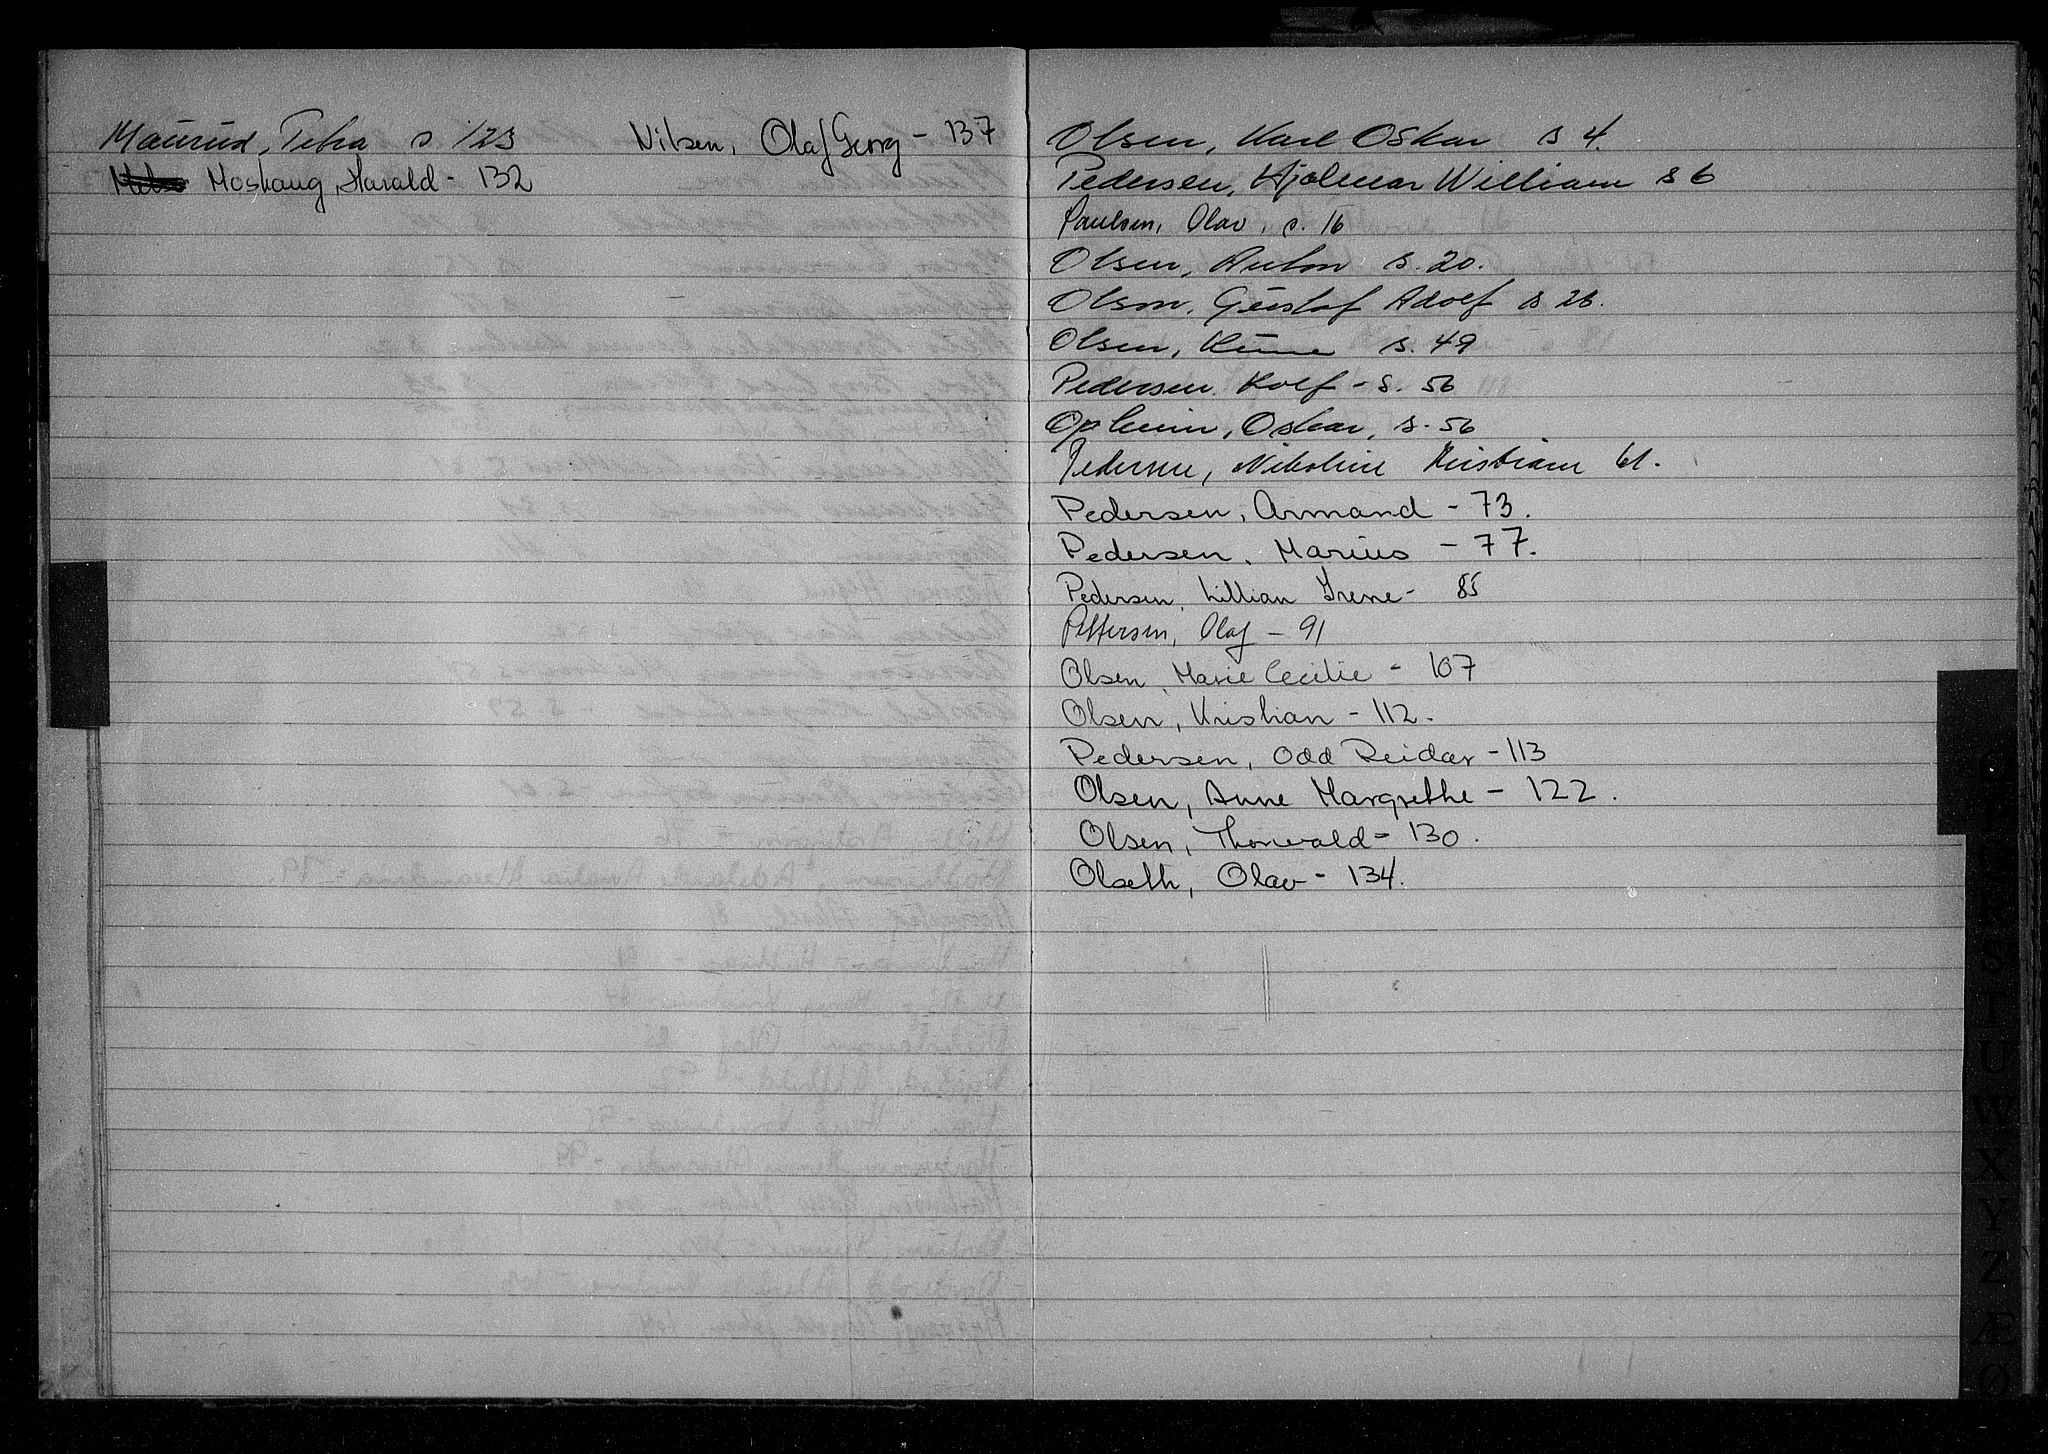 Maurud, Petra s 123
Moskaug, Harald - 132
Nilsen, Olaf Georg - 137
Olsen, Karl Oskar s 4.
Pedersen, Hjalmar William s 6
Paulsen, Olav, s. 16
Olsen, Anton s. 20.
Olsen, Gustaf Adolf s 26.
Olsen, s. 49
Pedersen, Rolf - s. 56
Opheim, Oskar, s. 56
Pedersen, Nikoline Kristiane 61.
Pedersen, Armand - 73.
Pedersen, Marius - 77.
Pedersen, Lillian Irene - 85
Pettersen, Olaf - 91
Olsen, Marie Cecilie - 107
Olsen, Kristian - 112.
Pedersen, Odd Reidar - 113
Olsen, Anne Margrethe - 122.
Olsen, Thorvald - 130.
Olseth, Olav - 134.
S
T
U
W
X
Y
Z
Æ
Ø